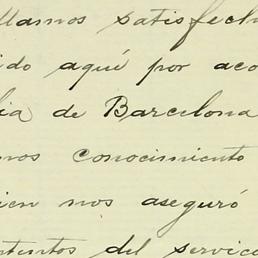 llamos satisfech
ido aquí por aco
ia de Barcelona
nos conocimiento
ien nos aseguró
ntentos del servic